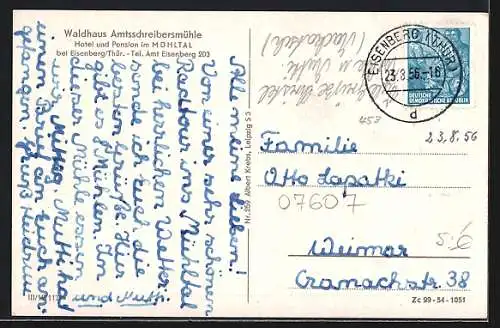 Waldhaus Amtsschreibersmühle
Hotel und Pension im MÜHLTAL
bei Eisenberg/Thür. - Tel. Amt Eisenberg 203
Alle meine Lieben!
Von einer sehr schönen
Radtour ins Mühltal
bei herrlichem Wetter
sende ich euch die
besten Grüße. Hier
gibt es Mühlen. In
dieser Mühle essen
wir Mittag. Mutti hat
einen Brief an euch an-
gefangen. Gruß
und Mutti
Nr. 259 Albert Krebs, Leipzig S 3
EISENBERG (THÜR)
23.8.56-16
d
DEUTSCHE
DEMOKRATISCHE REPUBLIK
458
23.8.56
Familie
Otto Lapatki
07607
Weimar
Cranachstr. 38
Zc 99-54-1051